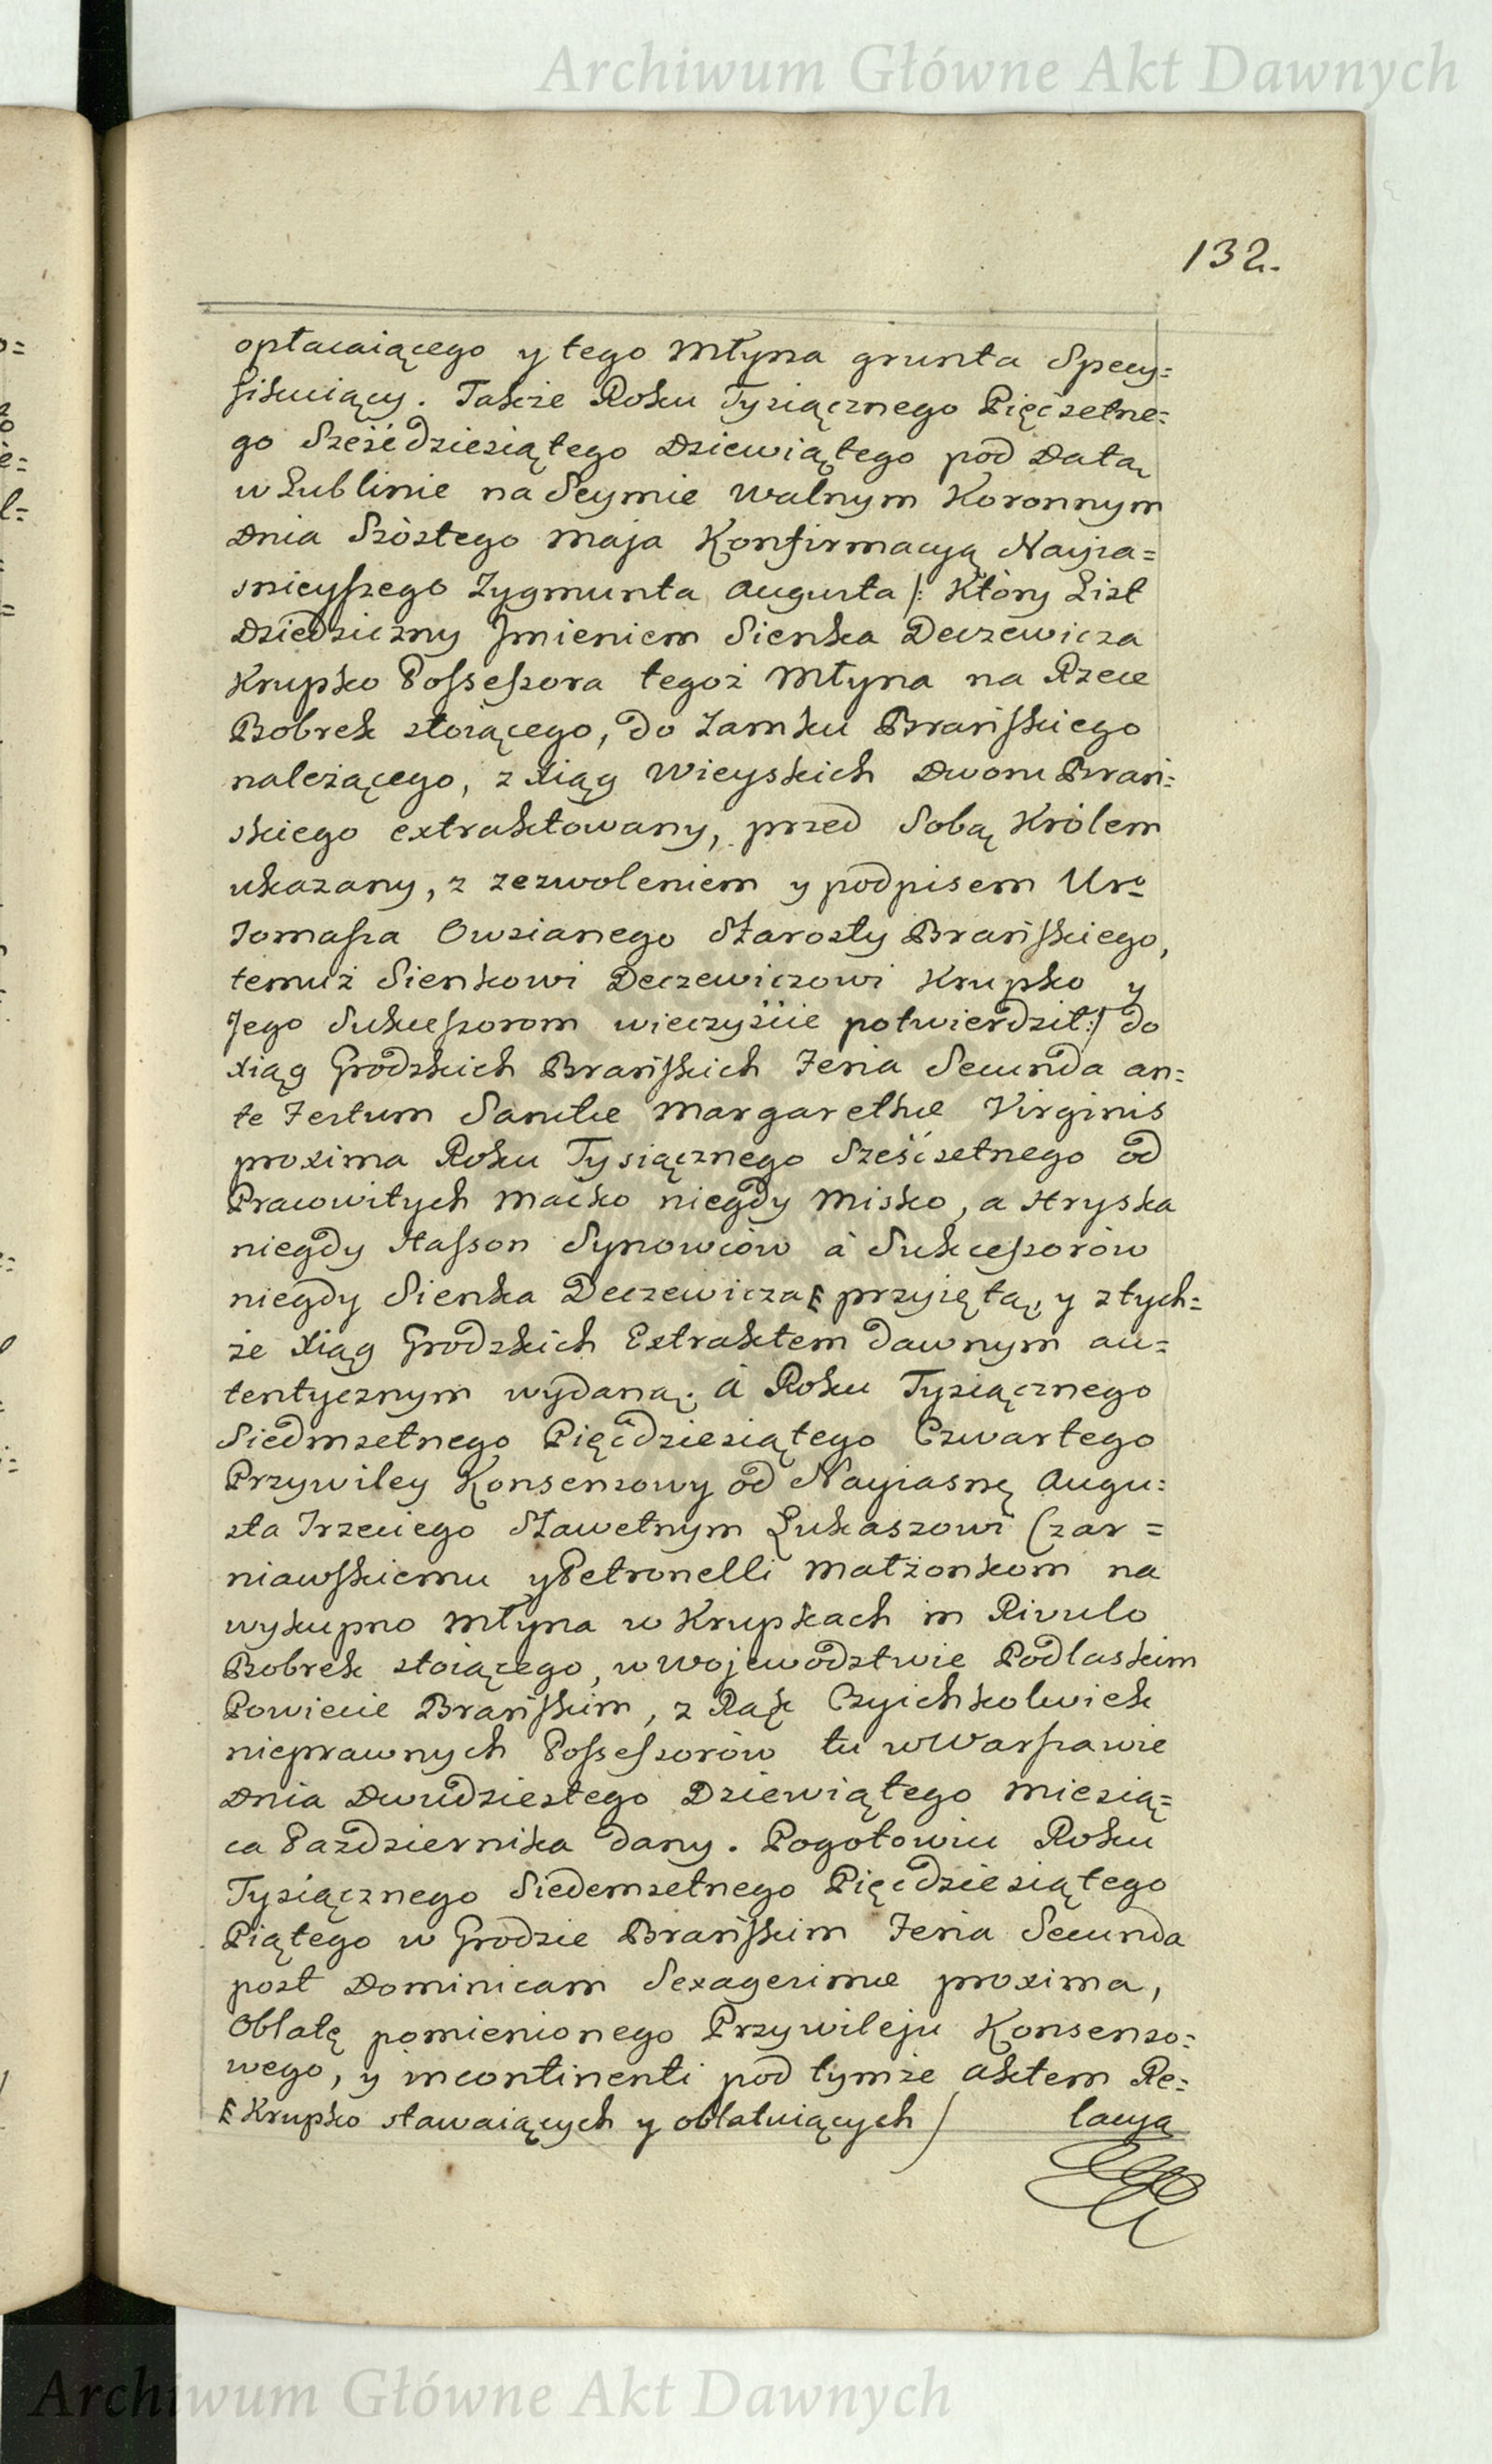 Archiwum Główne Akt Dawnych
132.
opłacaiącego y tego Młyna grunta Specy=
fikuiący. Także Roku Tysiącznego Pięćsetne=
go Sześćdziesiątego Dziewiątego pod Datą
w Lublinie na Seymie Walnym Koronnym
Dnia Szóstego Maja Konfirmacyą Nayia=
snieyszego Zygmunta Augusta /: Który List
Dziedziczny Jmieniem Sienka Deczewicza
Krupko Possessora tegoż Młyna na Rzece
Bobrek stoiącego, do Zamku Brańskiego
należącego, z Xiąg Wieyskich Dworu Brań=
skiego extraktowany, przed Sobą Królem
ukazany, z zezwoleniem y podpisem Uro
Tomasza Owsianego Starosty Brańskiego,
temuż Sienkowi Deczewiczowi Krupko y
Jego Sukcessorom wieczyście potwierdził:/ do
Xiąg Grodzkich Brańskich Feria Secunda an=
te Festum Sanctæ Margarethæ Virginis
proxima Roku Tysiącznego Sześćsetnego od
Pracowitych Macko niegdy Misko, a Hryska
niegdy Hasson Synowców á Sukcessorów
niegdy Sienka Deczewicza ₣ przyiętą, y z tych=
że Xiąg Grodzkich Extraktem dawnym au=
tentycznym wydaną. á Roku Tysiącznego
Siedmsetnego Pięćdziesiątego Czwartego
Przywiley Konsensowy od Nayiasnę Augu=
sta Trzeciego Sławetnym Łukaszowi Czar=
niawskiemu y Petronelli Małżonkom na
wykupno Młyna w Krupkach in Rivulo
Bobrek stoiącego, w Województwie Podlaskim
Powiecie Brańskim, z Rąk Czyichkolwiek
nieprawnych Possessorów tu w Warszawie
Dnia Dwudziestego Dziewiątego Miesią=
ca Pazdziernika dany. Pogotowiu Roku
Tysiącznego Siedemsetnego Pięćdziesiątego
Piątego w Grodzie Brańskim Feria Secunda
post Dominicam Sexagesimæ proxima,
Oblatę pomienionego Przywileju Konsenso=
wego, y incontinenti pod tymże Aktem Re=
₣ Krupko stawaiących y oblatuiących /
lacyą
Archiwum Główne Akt Dawnych